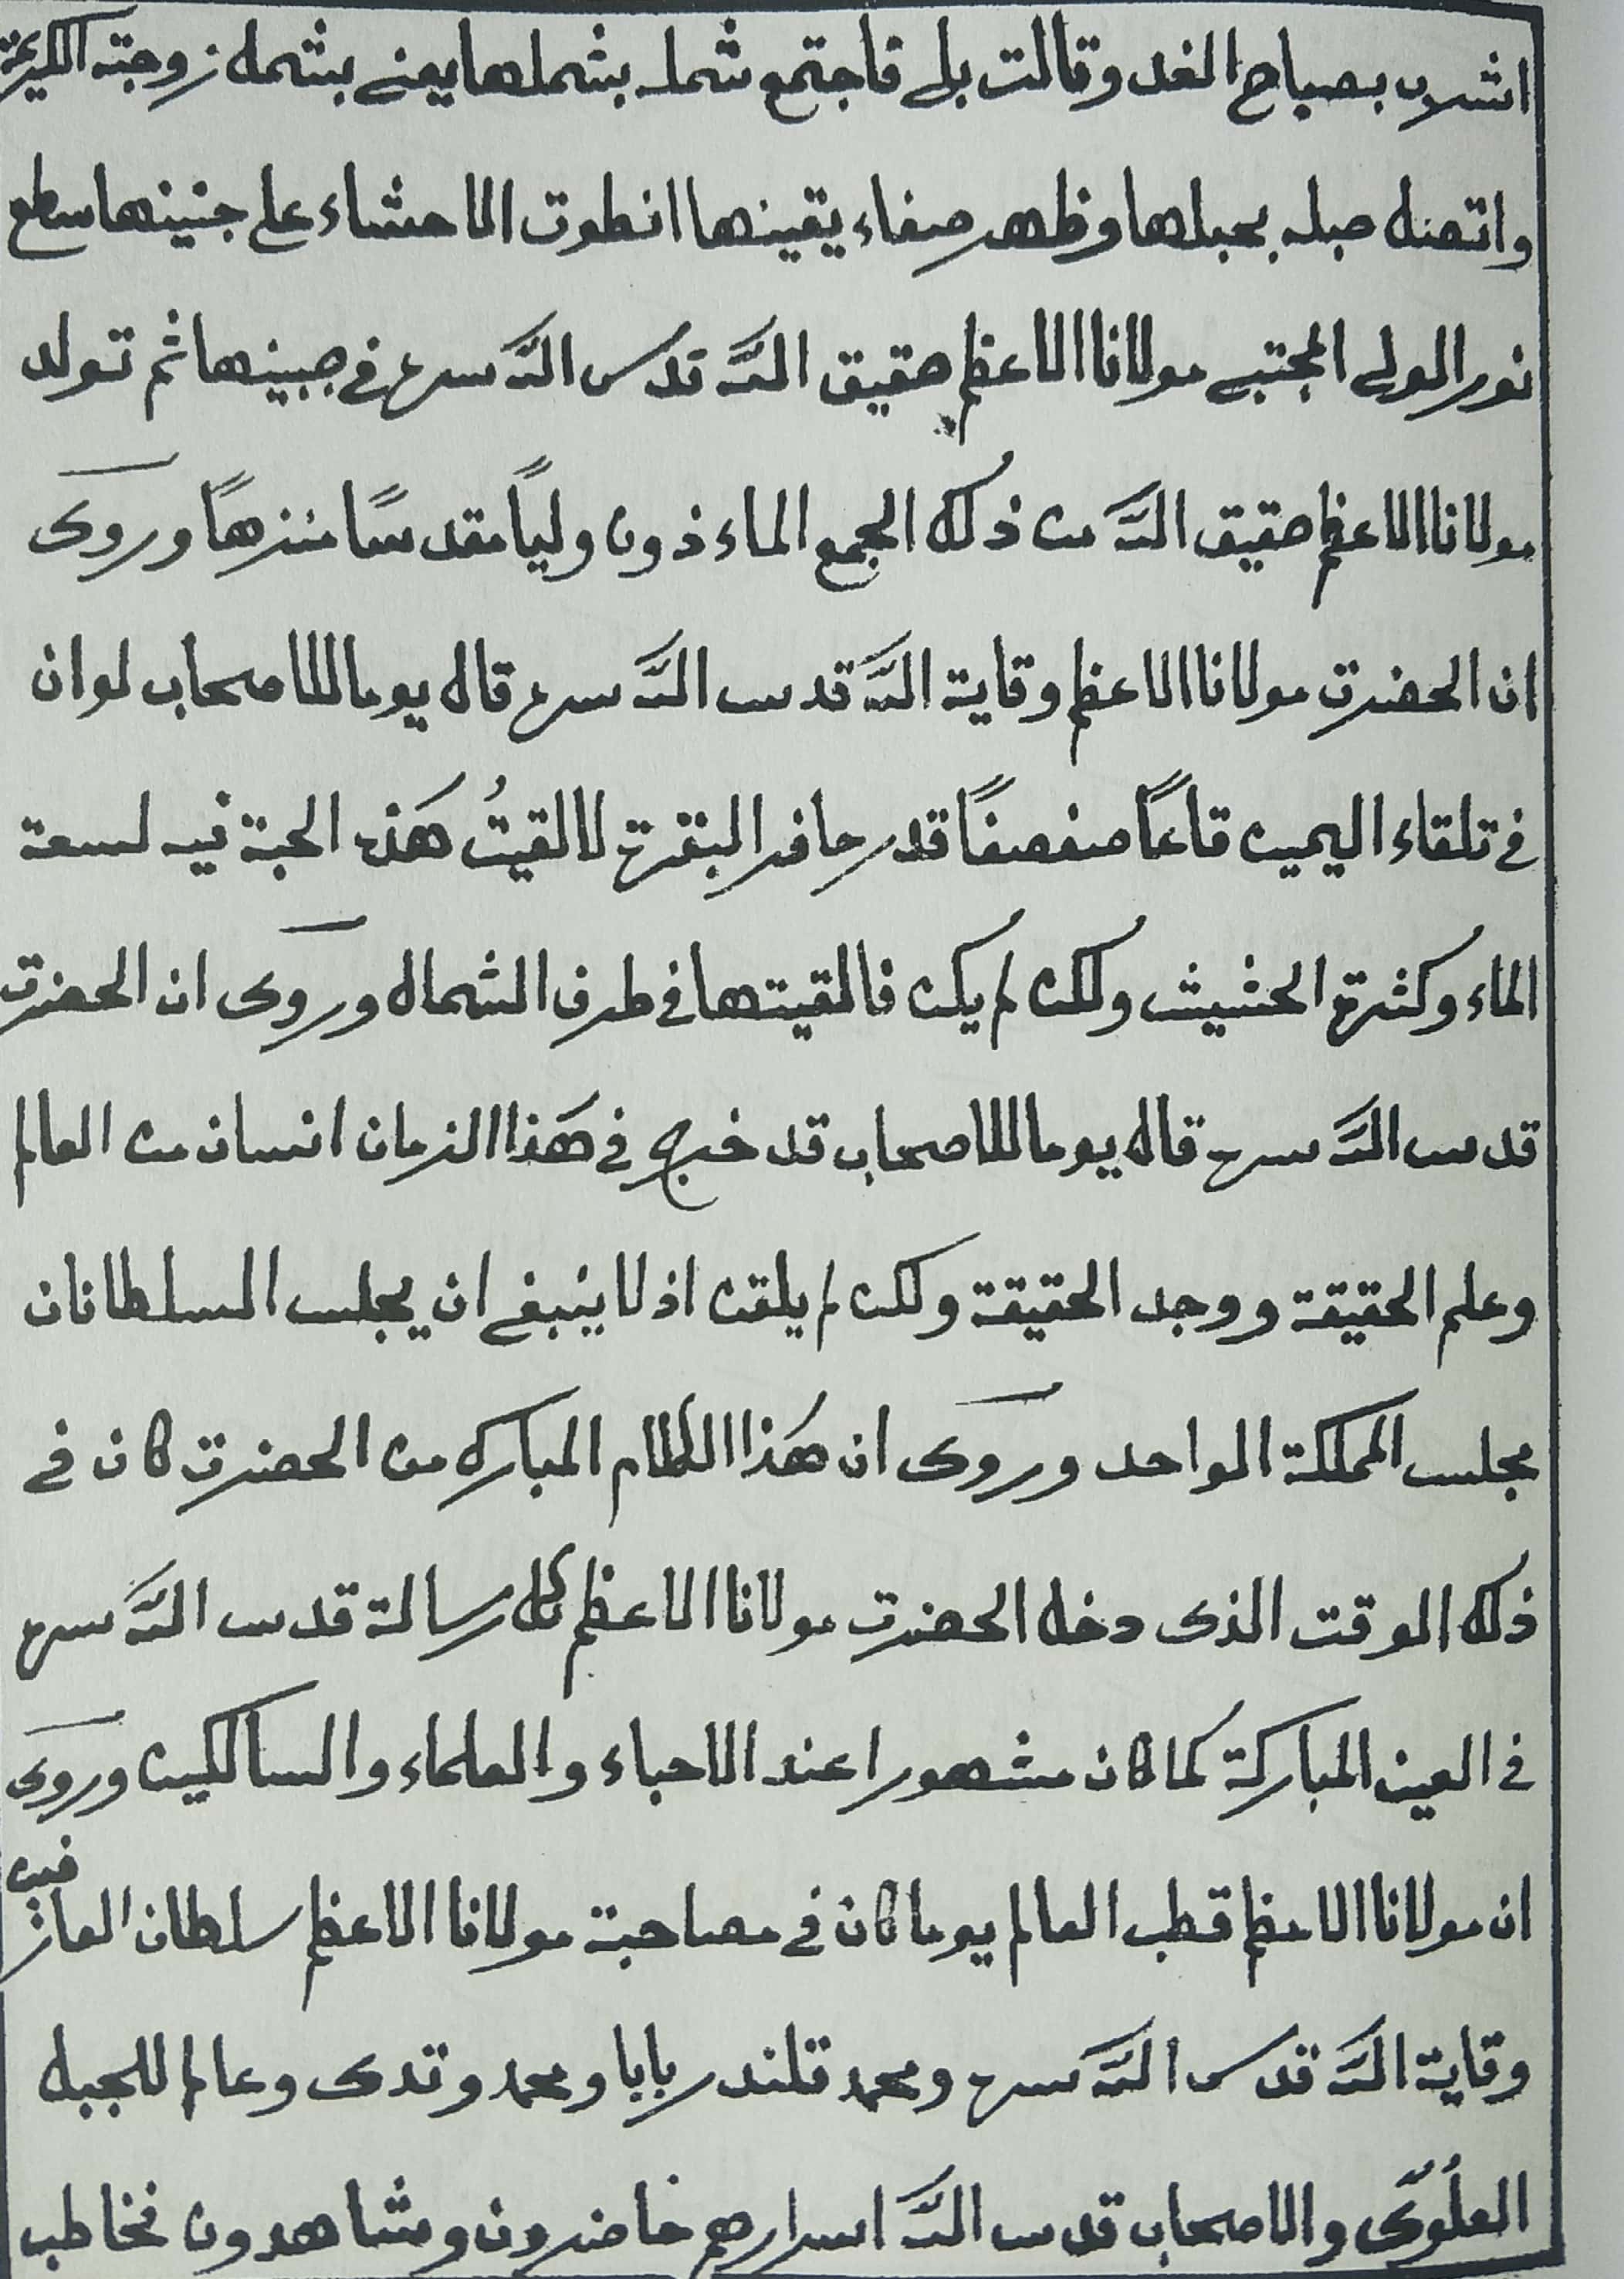 اشرب بصباح الغد وقالت بلى فاجتمع شمله بشملها يعنى بشمله زوجته الكريمة
واتصل حبله بحبلها وظهر صفاء يقينها انطوت الاحشاء على جنينها سطع
نور الولى المجتبى مولانا الاعظم حقيق اللّه قدس اللّه سره فى جبينها ثم تولد
مولانا الاعظم حقيق اللّه من ذلك الجمع الماءذون ولياً مقدساً منزهاً وروى
ان الحضرت مولانا الاعظم وقاية اللّه قدس اللّه سره قال يوما للاصحاب لو ان
فى تلقاء اليمين قاعاً صفصفاً قدر حافر البقرة لالقيتُ هذه الحبة فيه لسعة
الماء وكثرة الحشيش ولكن لم يكن فالقيتها فى طرف الشمال وروى ان الحضرت
قدس اللّه سره قال يوما للاصحاب قد خرج فى هذا الزمان انسان من العالم
وعلم الحقيقة ووجد الحقيقة ولكن لم يلقن اذ لا ينبغى ان يجلس السلطانان
مجلس المملكة الواحد وروى ان هذا الكلام المبارك من الحضرت كان فى
ذلك الوقت الذى دخل الحضرت مولانا الاعظم كل رسالة قدس اللّه سره
فى العين المباركة كما كان مشهورا عند الاحباء والعلماء والسالكين وروى
ان مولانا الاعظم قطب العالم يوما كان فى مصاحبة مولانا الاعظم سلطان العارفين
وقاية اللّه قدس اللّه سره ومحمد قلندر بابا ومحمد وتدى وعالم للجبل
العلُوّى والاصحاب قدس اللّه اسرارهم خاضرون ومشاهدون فخاطب